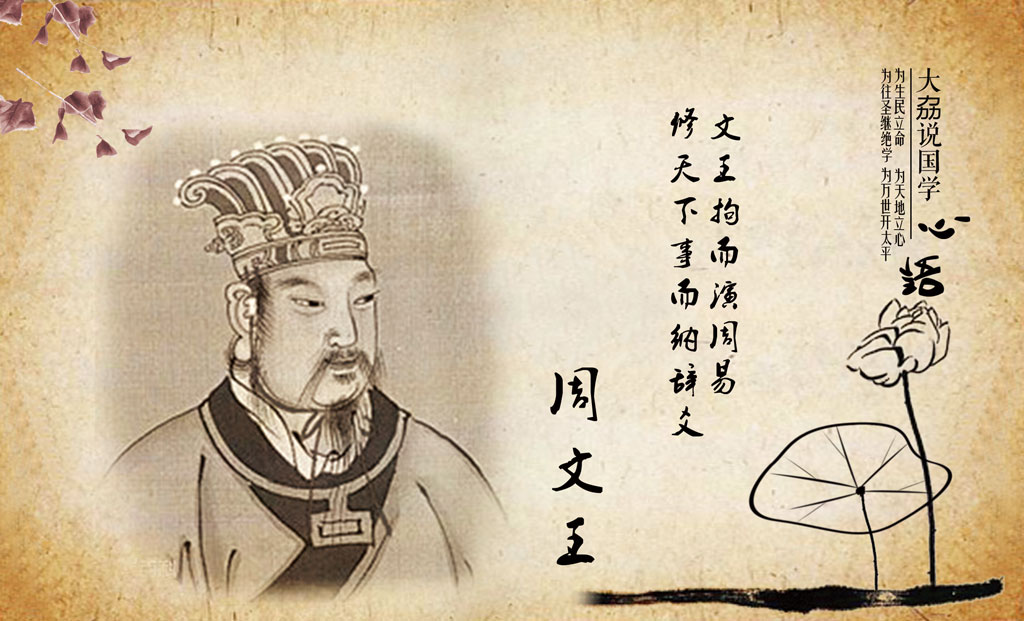 大刕说国学
心语
为生民立命 为天地立心
为往圣继绝学 为万世开太平
文王拘而演周易
修天下事而纳辞爻
周文王